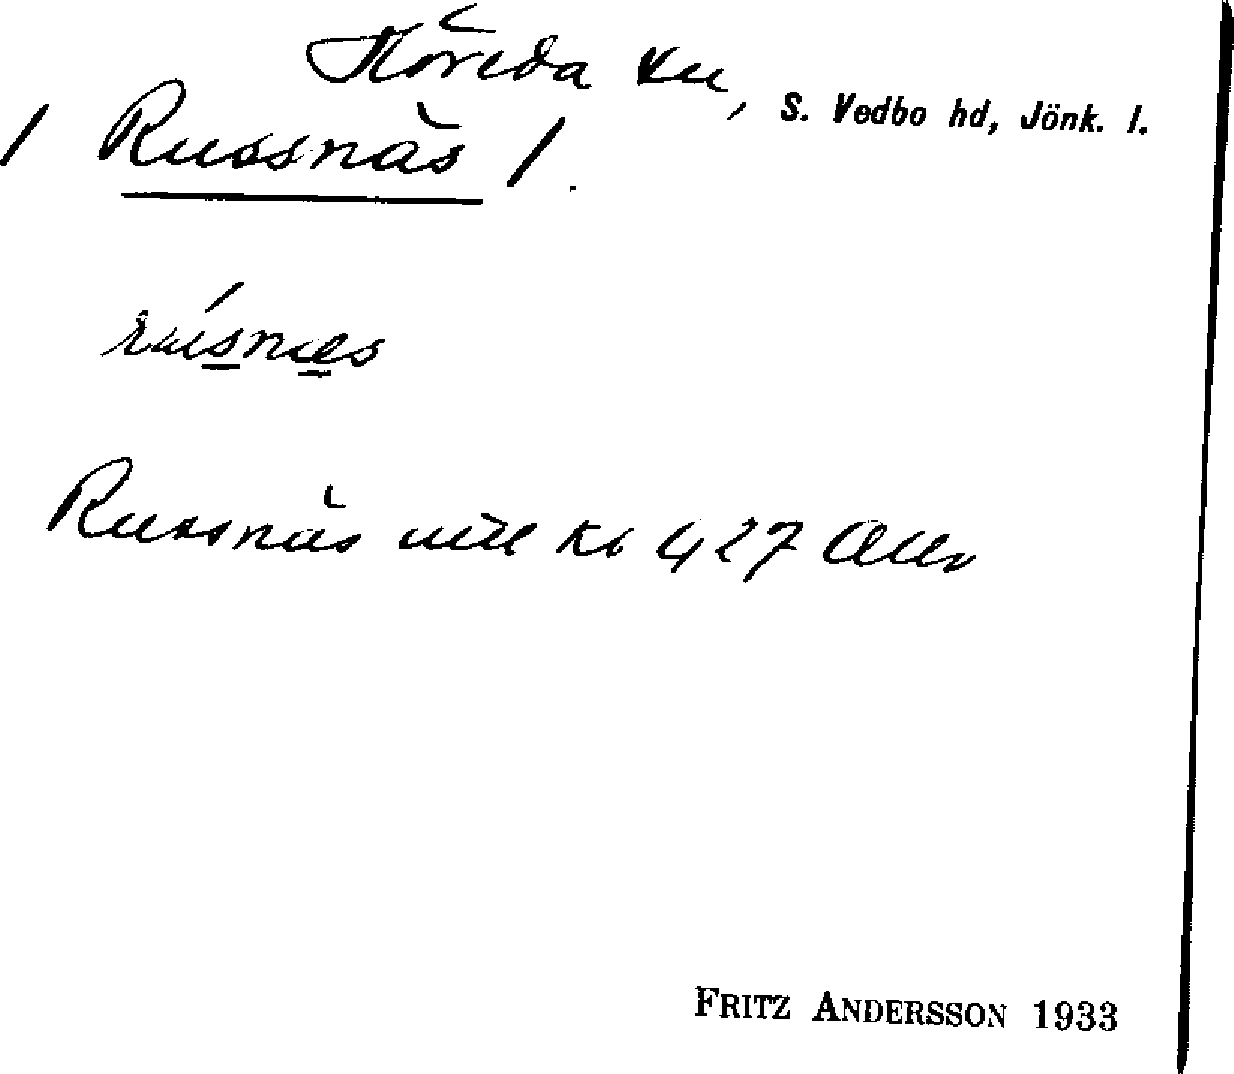 Höreda sn, S. Vedbo hd, Jönk. l.
/ Russnäs /.
rusnäs
Russnäs 427
FRITZ ANDERSSON 1933